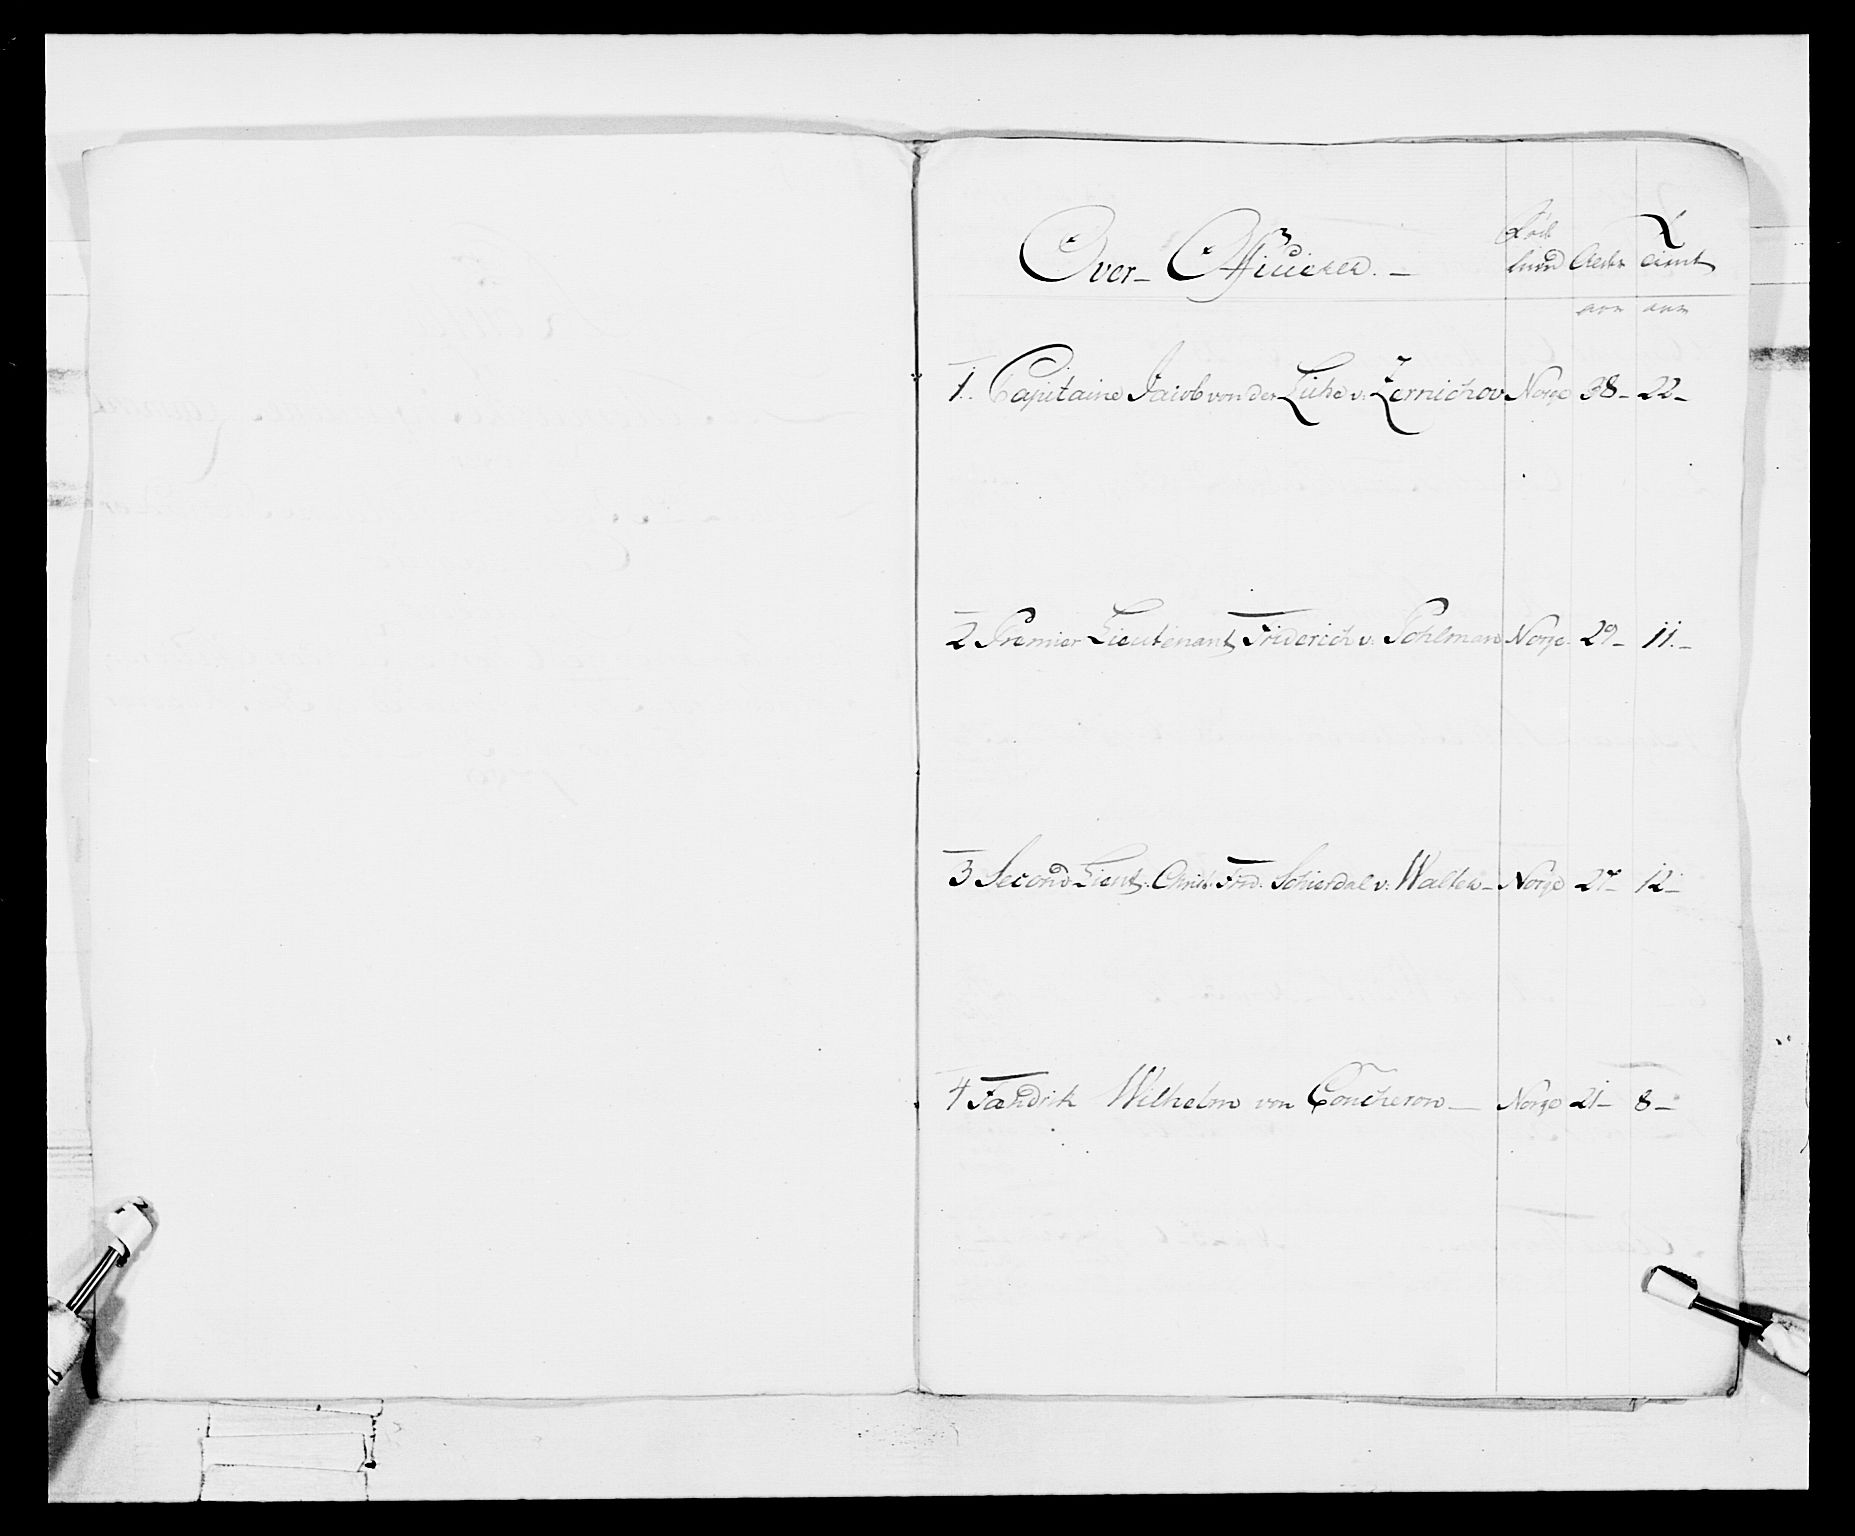 Over-Officierer. — Føde land Alder Tient
aar aar
1. Capitaine Jacob von der Lühe v. Zernichov Norge 38- 22-
2 Premier Lieutenant Friderich v. Pohlman Norge 29- 11.-
3 Second Lieut: Christ. Frid. Schierdal v: Walter- Norge 27- 12-
4 Fændrik Wilhelm von Coucheron — Norge 21- 8-